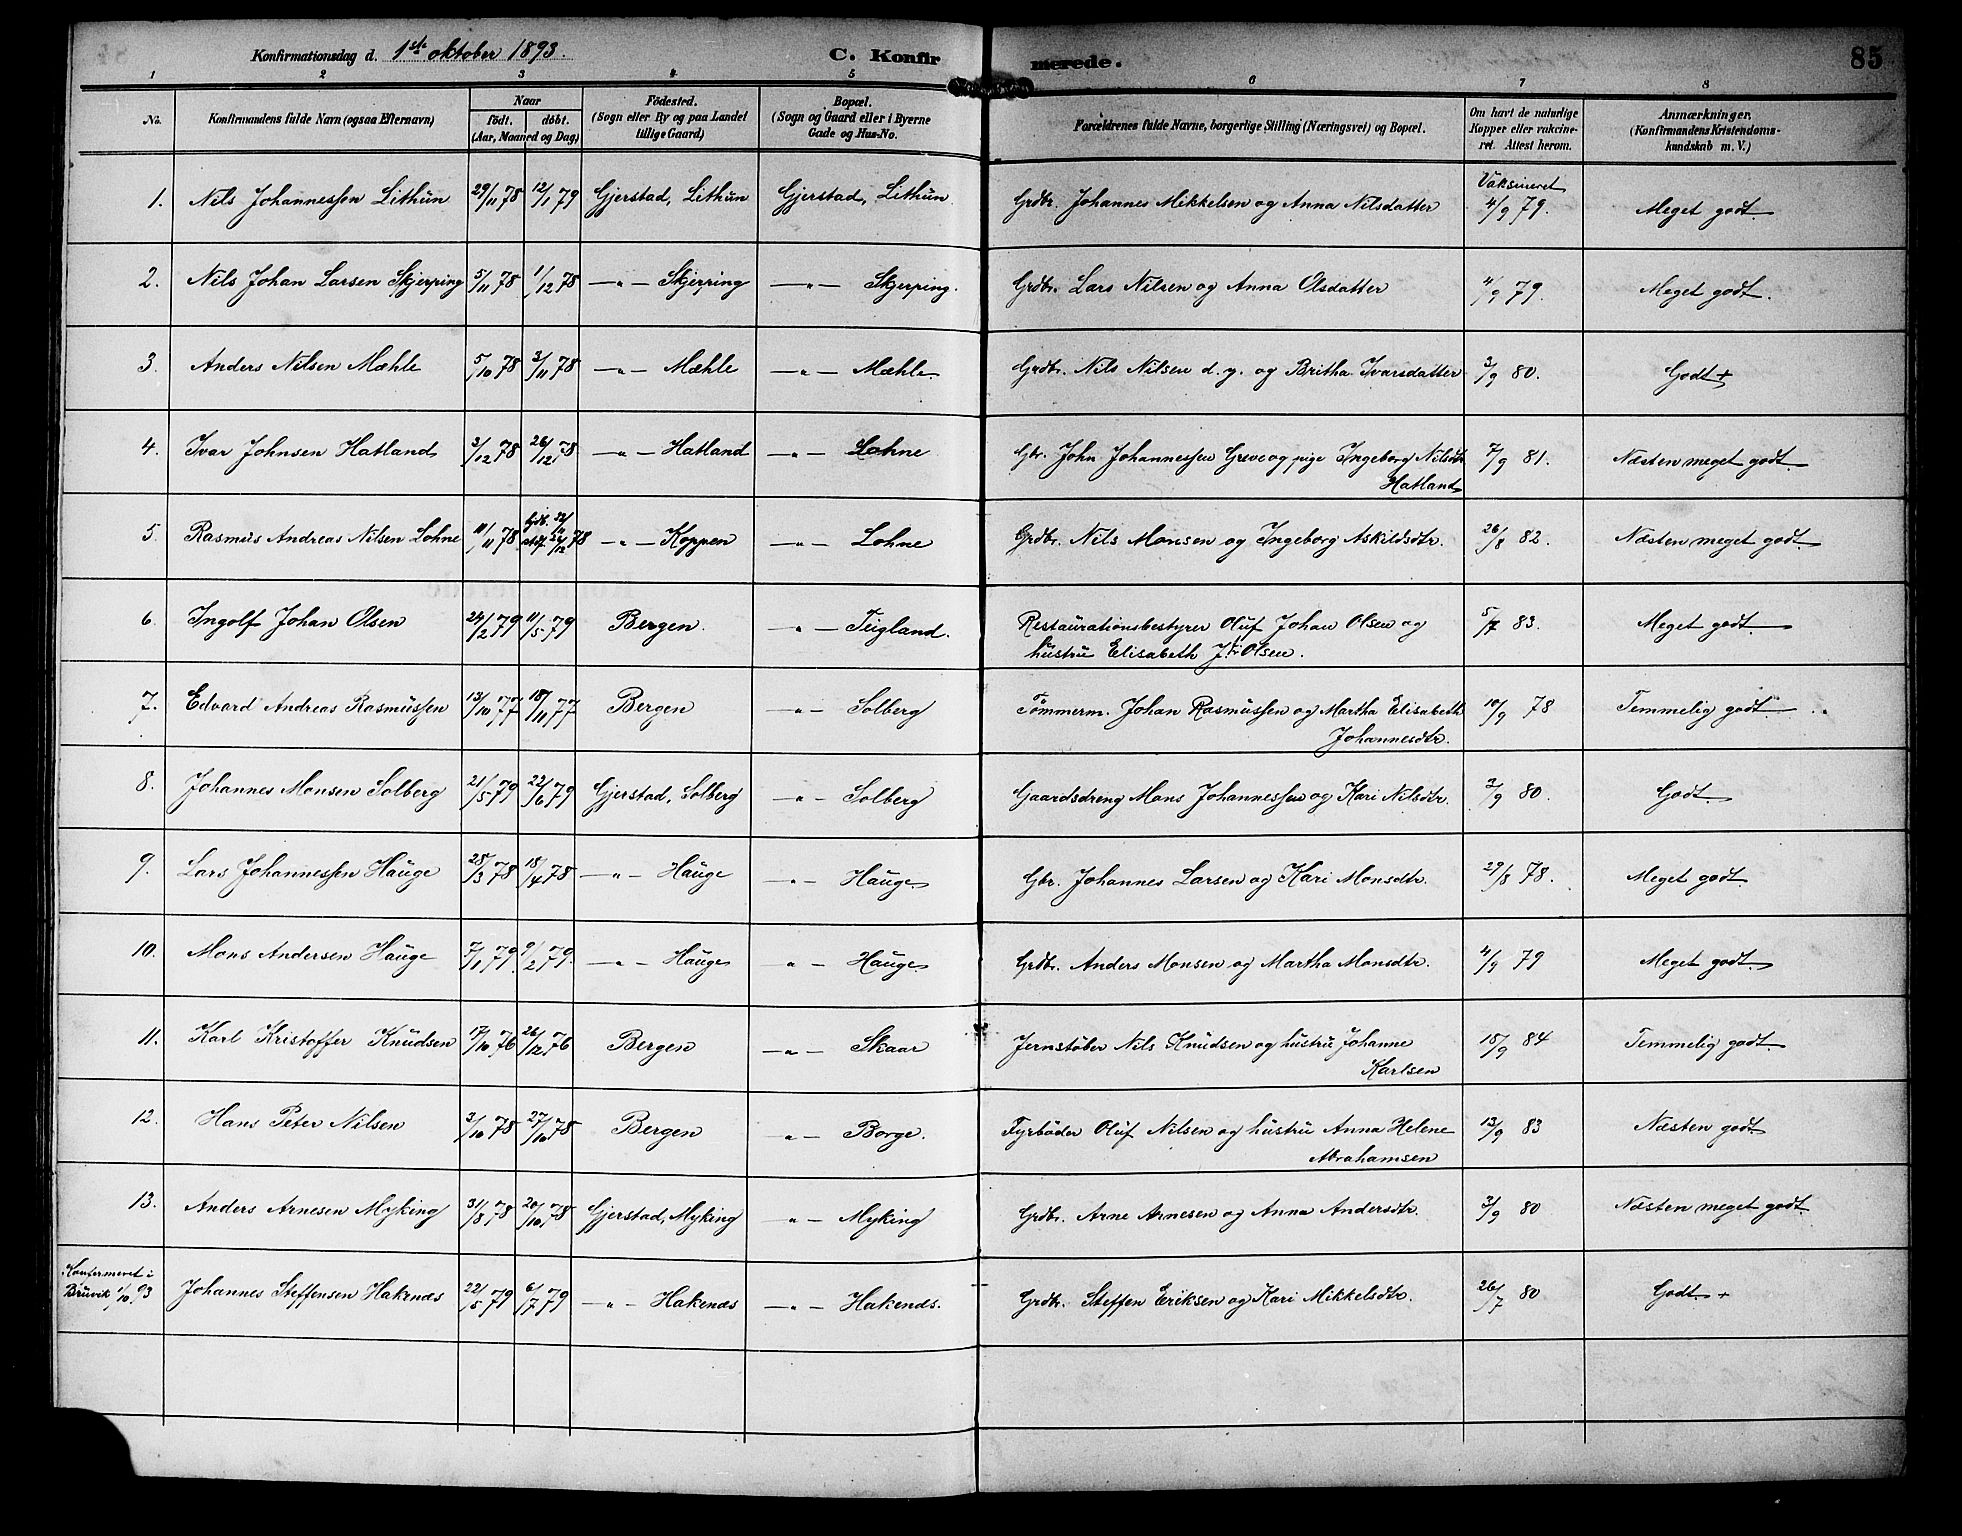 Konfirmationsdag d. 1ste oktober 1893. C. Konfirmerede. 85
1 2 3 4 5 6 7 8
No. Konfirmandens fulde Navn (ogsaa Efternavn) Naar født. døbt. (Aar, Maaned og Dag) Fødested. (Sogn eller By og paa Landet tillige Gaard) Bopæl. (Sogn og Gaard eller i Byerne Gade og Hus-No. Forældrenes fulde Navne, borgerlige Stilling (Næringsvei) og Bopæl. Om havt de naturlige Kopper eller vakcineret. Attest herom. Anmærkninger. (Konfirmandens Kristendomskundskab m. V.)
1. Nils Johannessen Lithun 29/11 78 12/1 79 Gjerstad, Lithun Gjerstad, Lithun. Grdbr. Johannes Mikkelsen og Anna Nilsdatter Vaksineret 4/9 79. Meget godt.
2. Nils Johan Larsen Skjerping 5/11 78 1/12 78 —„— Skjerping —„— Skjerping. Grdbr. Lars Nilsen og Anna Olsdatter 4/9 79. Meget godt.
3. Anders Nilsen Mæhle 5/10 78 3/11 78 —„— Mæhle —„— Mæhle. Grdbr. Nils Nilsen d. y. og Britha Ivarsdatter 3/9 80. Godt +
4. Ivar Johnsen Hatland 3/12 78 26/12 78 —„— Hatland —„— Lohne Gbr. John Johannessen Greve og pige Ingeborg Nilsdtr 7/9 81. Næsten meget godt.
Hatland
5. Rasmus Andreas Nilsen Lohne 11/11 78 78 —„— Koppen —„— Lohne Grdbr. Nils Monsen og Ingeborg Askildsdtr. 26/8 82. Næsten meget godt.
6. Ingolf Johan Olsen 24/2 79 11/5 79 Bergen. —„— Teigland. Restaurationsbestyrer Oluf Johan Olsen og 83. Meget godt.
hustru Elisabeth Olsen.
7. Edvard Andreas Rasmussen 13/10 77 18/11 77 Bergen —„— Solberg Tømmerm. Johan Rasmussen og Martha Elisabeth 10/9 78 Temmelig godt.
Johannesdtr.
8. Johannes Monsen Solberg 21/5 79 22/6 79 Gjerstad, Solberg —„— Solberg Gaardsdreng Mons Johannessen og Kari Nilsdtr. 3/9 80. Godt.
9. Lars Johannessen Hauge 25/3 78 18/4 78 —„— Hauge —„— Hauge Gbr. Johannes Larsen og Kari Monsdtr. 29/8 78. Meget godt.
10. Mons Andersen Hauge 7/1 79 9/2 79. —„— Hauge „— Hauge Grdbr. Anders Monsen og Martha Monsdtr. 4/9 79 Meget godt.
11. Karl Kristoffer Knudsen 17/10 76 26/12 76 Bergen —„— Skaar Jernstøber Nils Knudsen og hustru Johanne 18/9 84 Temmelig godt.
Karlsen
12. Hans Peter Nilsen 3/10 78 27/10 78 Bergen „— Borge. Fyrbøder Oluf Nilsen og hustru Anna Helene 13/9 83 Næsten godt
Abrahamsen
13. Anders Arnesen Myking 31/8 78 20/10 78 Gjerstad, Myking „— Myking Grdbr. Arne Arnesen og Anna Andersdtr. 3/9 80 Næsten meget godt.
Konfermeret i
Bruvik 1/10 93 Johannes Steffensen Hakenæs 22/5 79 6/7 79 —„— Hakenæs —„— Hakenæs. Grdbr. Steffen Eriksen og Kari Mikkelsdtr. 26/7 80 Godt. +